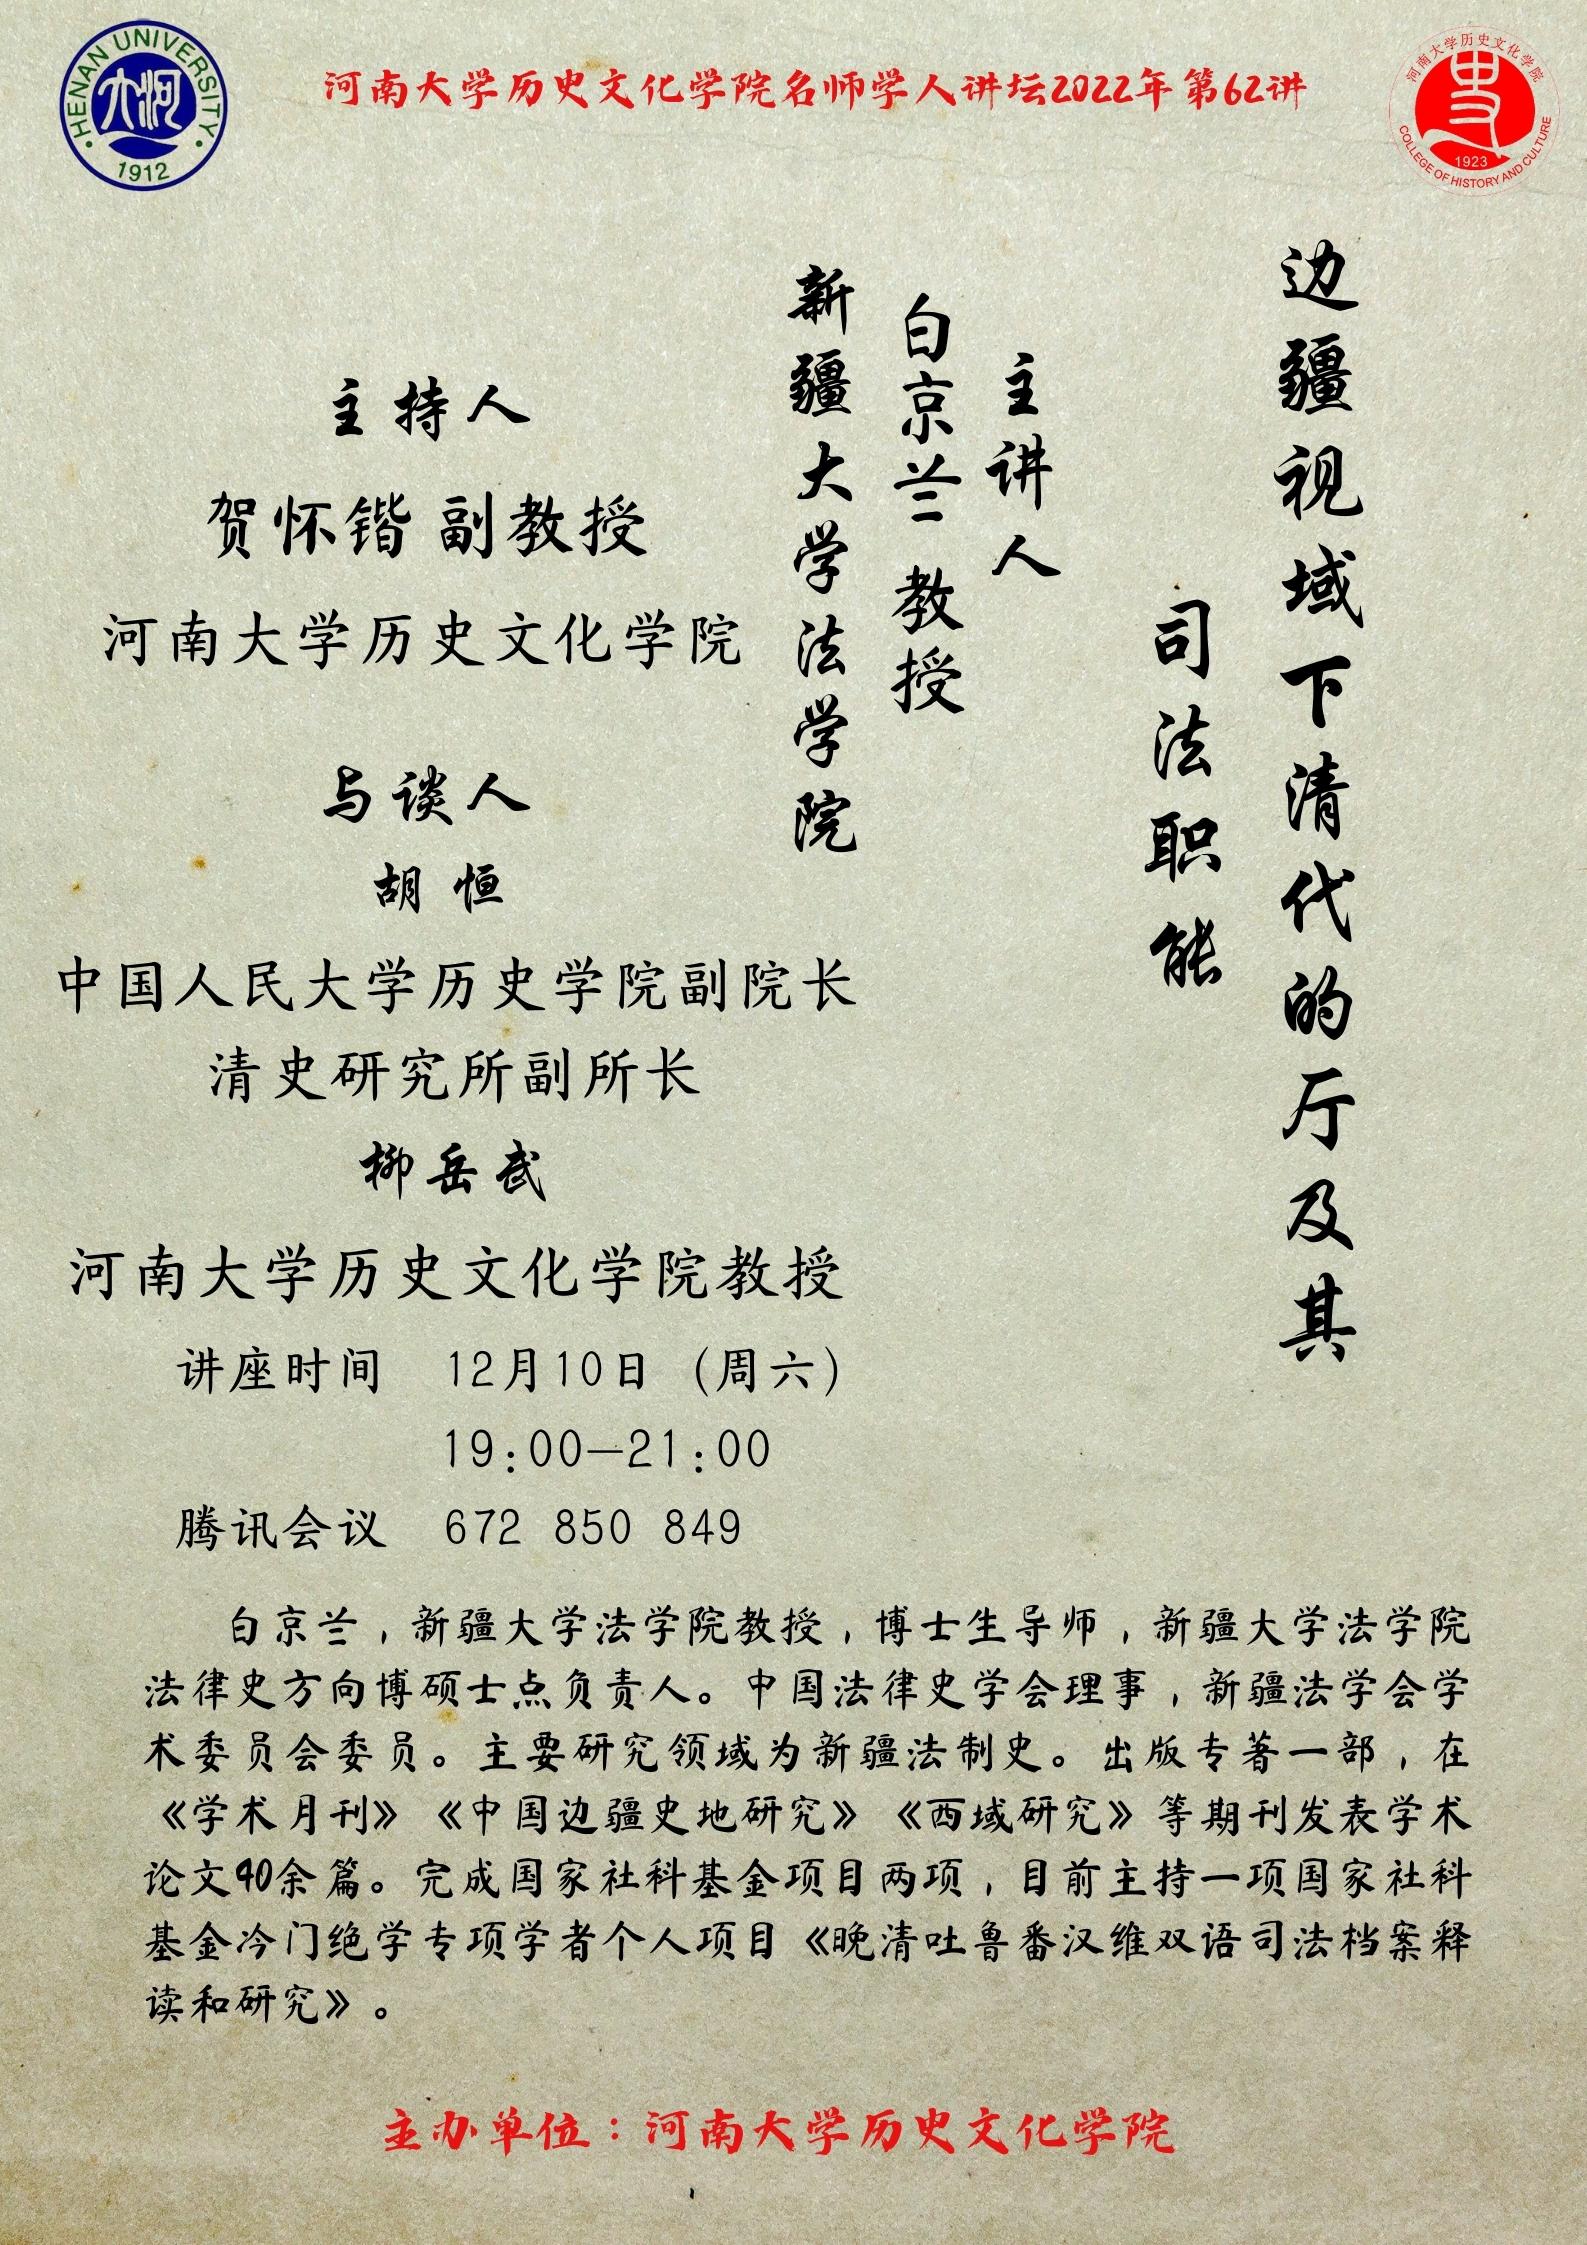 HENAN UNIVERSITY
1912
河南大学历史文化学院名师学人讲坛2022年第62讲
河南大学历史文化学院
1923
COLLEGE OF HISTORY AND CULTURE
边疆视域下清代的厅及其
司法职能
主讲人
白京兰 教授
新疆大学法学院
主持人
贺怀锴 副教授
河南大学历史文化学院
与谈人
胡恒
中国人民大学历史学院副院长
清史研究所副所长
柳岳武
河南大学历史文化学院教授
讲座时间 12月10日（周六）
19:00—21:00
腾讯会议 672 850 849
白京兰，新疆大学法学院教授，博士生导师，新疆大学法学院
法律史方向博硕士点负责人。中国法律史学会理事，新疆法学会学
术委员会委员。主要研究领域为新疆法制史。出版专著一部，在
《学术月刊》《中国边疆史地研究》《西域研究》等期刊发表学术
论文40余篇。完成国家社科基金项目两项，目前主持一项国家社科
基金冷门绝学专项学者个人项目《晚清吐鲁番汉维双语司法档案释
读和研究》。
主办单位：河南大学历史文化学院